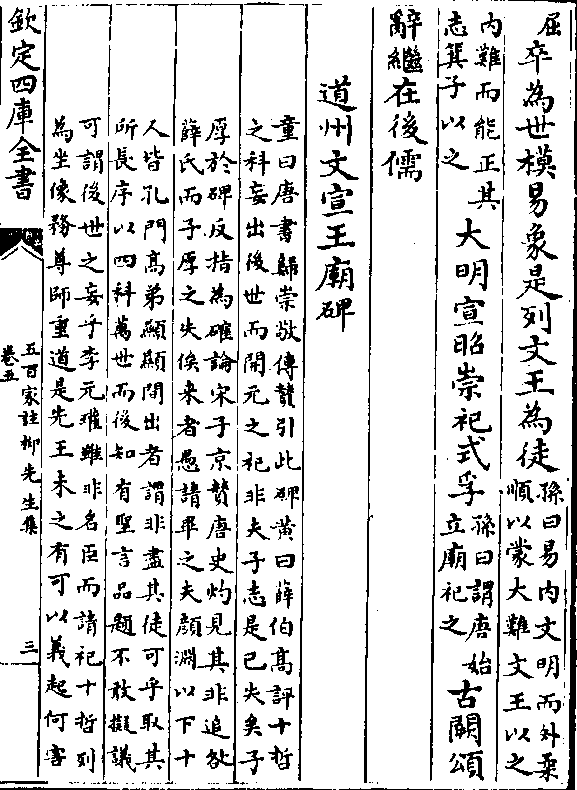 屈卒為世模易象是列文王為徒孫曰易內文明而外柔
順以蒙大難文王以之
內難而能正其
志箕子以之大明宣昭崇祀式孚孫曰謂唐始
立廟祀之古闕頌
辭繼在後儒
道州文宣王廟碑
童曰唐書歸崇敬傳贊引此碑黃曰薛伯髙評十哲
之科妄出後世而開元之祀非夫子志是已失矣子
厚於碑反指為確論宋子京贊唐史灼見其非追咎
薛氏而子厚之失俟来者愚請畢之夫顔淵以下十
人皆孔門髙弟顯顯間出者謂非盡其徒可乎取其
所長序以四科萬世而後知有聖言品題不敢擬議
可謂後世之妄乎李元瓘雖非名臣而請祀十哲列
為坐像務尊師重道是先王未之有可以義起何害
欽定四庫全書
五百家註柳先生集
卷五
三